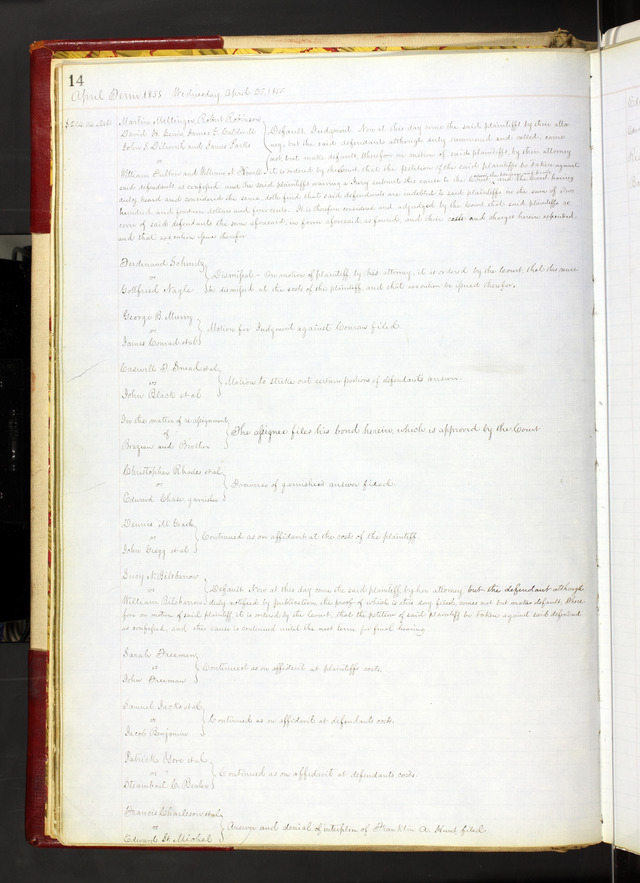 14
April Term 1855 Wednesday April 25, 1855
Martin Mellinger, Robert Robinson
David H. Lewis James G. Caldwell
John S. Dilworth and James Parks
vs
William Fulton and William H. Howell
Default Judgment. Now at this day come the said plaintiffs by their atto
rney, but the said defendants although duly summoned and called, come
not but make default, therefore on motion of said plaintiffs, by their attorney
it is ordered by the Court, that the petition of the said plaintiffs be taken against
said defendants as confessed and the said plaintiffs waiving a Jury submit this cause to the Court and the Court having
duly heard and considered the same, doth find that said defendants are indebted to said plaintiffs in the sum of Two
hundred and fourteen dollars and five cents. It is therefore considered and adjudged by the Court that said plaintiffs re
cover of said defendants the sum aforesaid, in form aforesaid, as found, and their costs and charges herein expended,
and that execution issue therefor
Ferdinand Schmitz
vs
Gottfried Nagle
Dismissal - On motion of plaintiff by his attorney, it is ordered by the Court, that this cause
be dismissed at the costs of the plaintiff and that execution be issued therefor.
George B. Murry
vs
James Conrad et al
Motion for Judgment against Conrad filed
Caswell et al
vs
John Black et al
Motion to strike out certain portions of defendants answer.
In the matter of re assignment
of
Brazeau and Brother
The assignee files his bond herein, which is approved by the Court
Christopher Rhodes et al
vs
Edward Chase garnishee
garnishee's answer filed
Dennis McGrade
vs
John Gregg et al
Continued as on affidavit at the costs of the plaintiff
Lucy N. Bilsbarrow
vs
William Bilsbarrow
Default. Now at this day come the said plaintiff by her attorney but the defendant although
duly notified by publication, the proof of which is this day filed, comes not but makes default, There
fore on motion of said plaintiff, it is ordered by the Court, that the petition of said plaintiff be taken against said defendant
as confessed, and this cause is continued until the next term for final hearing
Sarah Freeman
vs
John Freeman
Continued as on affidavit at plaintiffs costs.
Samuel Jacks et al
vs
Jacob Benjamin
Continued as on affidavit at defendants costs.
Patrick Gore et al
vs
Steamboat C. Bealer
Continued as on affidavit at defendants costs.
Francis Charleson et al
vs
Edward St. Michal
Answer and denial of interplea of Franklin A. Hunt filed